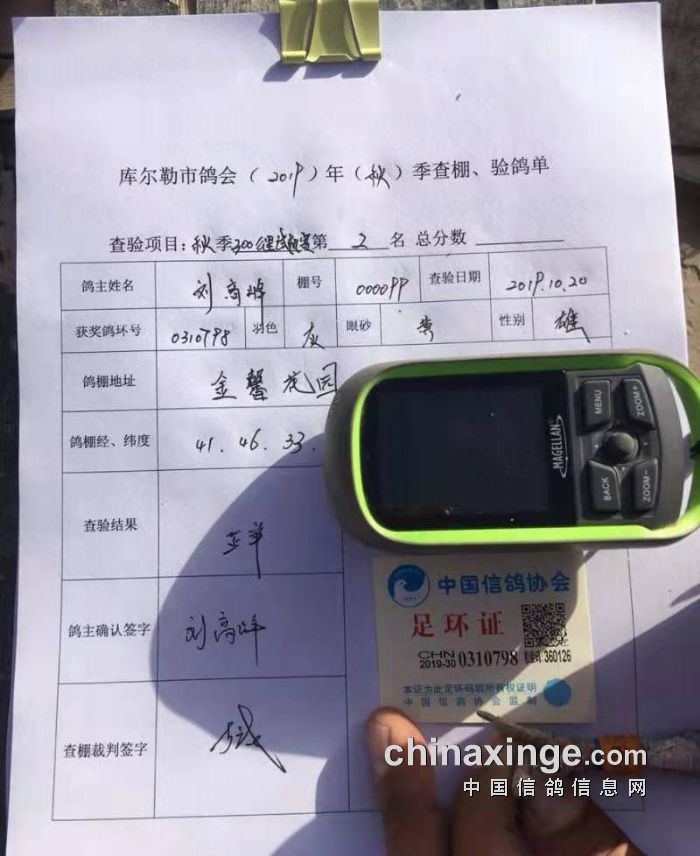 库尔勒市鸽会（2019）年（秋）季查棚、验鸽单
查验项目：秋季300公里 赛第 2 名 总分数
鸽主姓名 刘高峰 棚号 0000PP 查验日期 2019.10.20
获奖鸽环号 0310798 羽色 灰 眼砂 黄 性别 雄
鸽棚地址 金馨花园
鸽棚经、纬度 41.46.33.
查验结果
鸽主确认签字 刘高峰
查棚裁判签字
MAGELLAN
MENU
ZOOM+
BACK
ZOOM-
中国信鸽协会
足环证
CHN
2019-30 0310798 360126
本证为此足环码鸽所有权证明
中国信鸽协会监制
chinaxinge.com
中国信鸽信息网